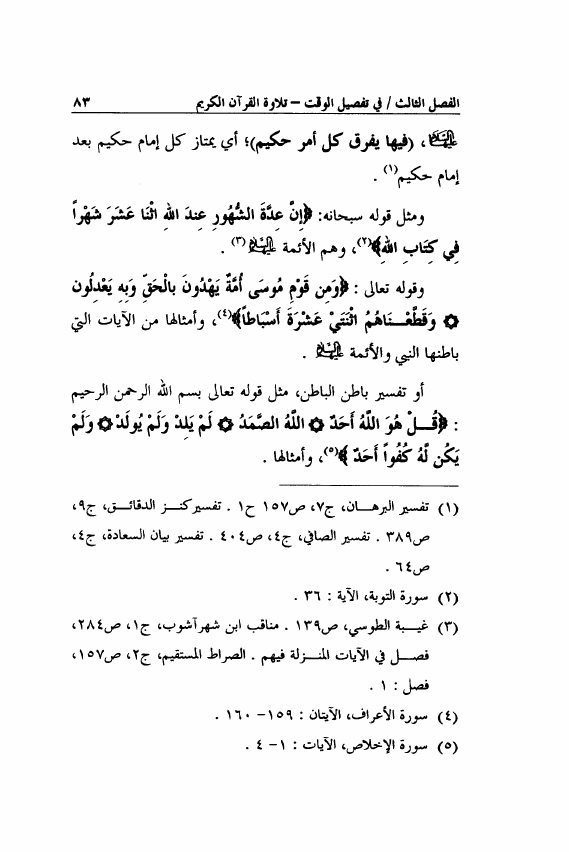 الفصل الثالث / في تفصيل الوقت – تلاوة القرآن الكريم ٨٣
عليه السلام، (فيها يفرق كل أمر حكيم)؛ أي يمتاز كل إمام حكيم بعد
إمام حكيم(١) .
ومثل قوله سبحانه: ﴿إِنَّ عِدَّةَ الشُّهُورِ عِندَ اللهِ اثْنَا عَشَرَ شَهْراً
فِي كِتَابِ اللهِ﴾(٢)، وهم الأئمة عليهم السلام(٣) .
وقوله تعالى : ﴿وَمِن قَوْمِ مُوسَى أُمَّةٌ يَهْدُونَ بِالْحَقِّ وَبِهِ يَعْدِلُون
۞ وَقَطَّعْـنَاهُمُ اثْنَتَيْ عَشْرَةَ أَسْبَاطاً﴾(٤)، وأمثالها من الآيات التي
باطنها النبي والأئمة عليهم السلام .
أو تفسير باطن الباطن، مثل قوله تعالى بسم الله الرحمن الرحيم
: ﴿قُـلْ هُوَ اللَّهُ أَحَدٌ ۞ اللَّهُ الصَّمَدُ ۞ لَمْ يَلِدْ وَلَمْ يُولَدْ ۞ وَلَمْ
يَكُن لَّهُ كُفُواً أَحَدٌ ﴾(٥)، وأمثالها .
(١) تفسير البرهـان، ج٧، ص١٥٧ ح١ . تفسير كنـز الدقائـق، ج٩،
ص٣٨٩ . تفسير الصافي، ج٤، ص٤٠٤ . تفسير بيان السعادة، ج٤،
ص٦٤ .
(٢) سورة التوبة، الآية : ٣٦ .
(٣) غيـبة الطوسي، ص١٣٩ . مناقب ابن شهرآشوب، ج١، ص٢٨٤،
فصـل في الآيات المنـزلة فيهم . الصراط المستقيم، ج٢، ص١٥٧،
فصل : ١ .
(٤) سورة الأعراف، الآيتان : ١٥٩– ١٦٠ .
(٥) سورة الإخلاص، الآيات : ١– ٤ .